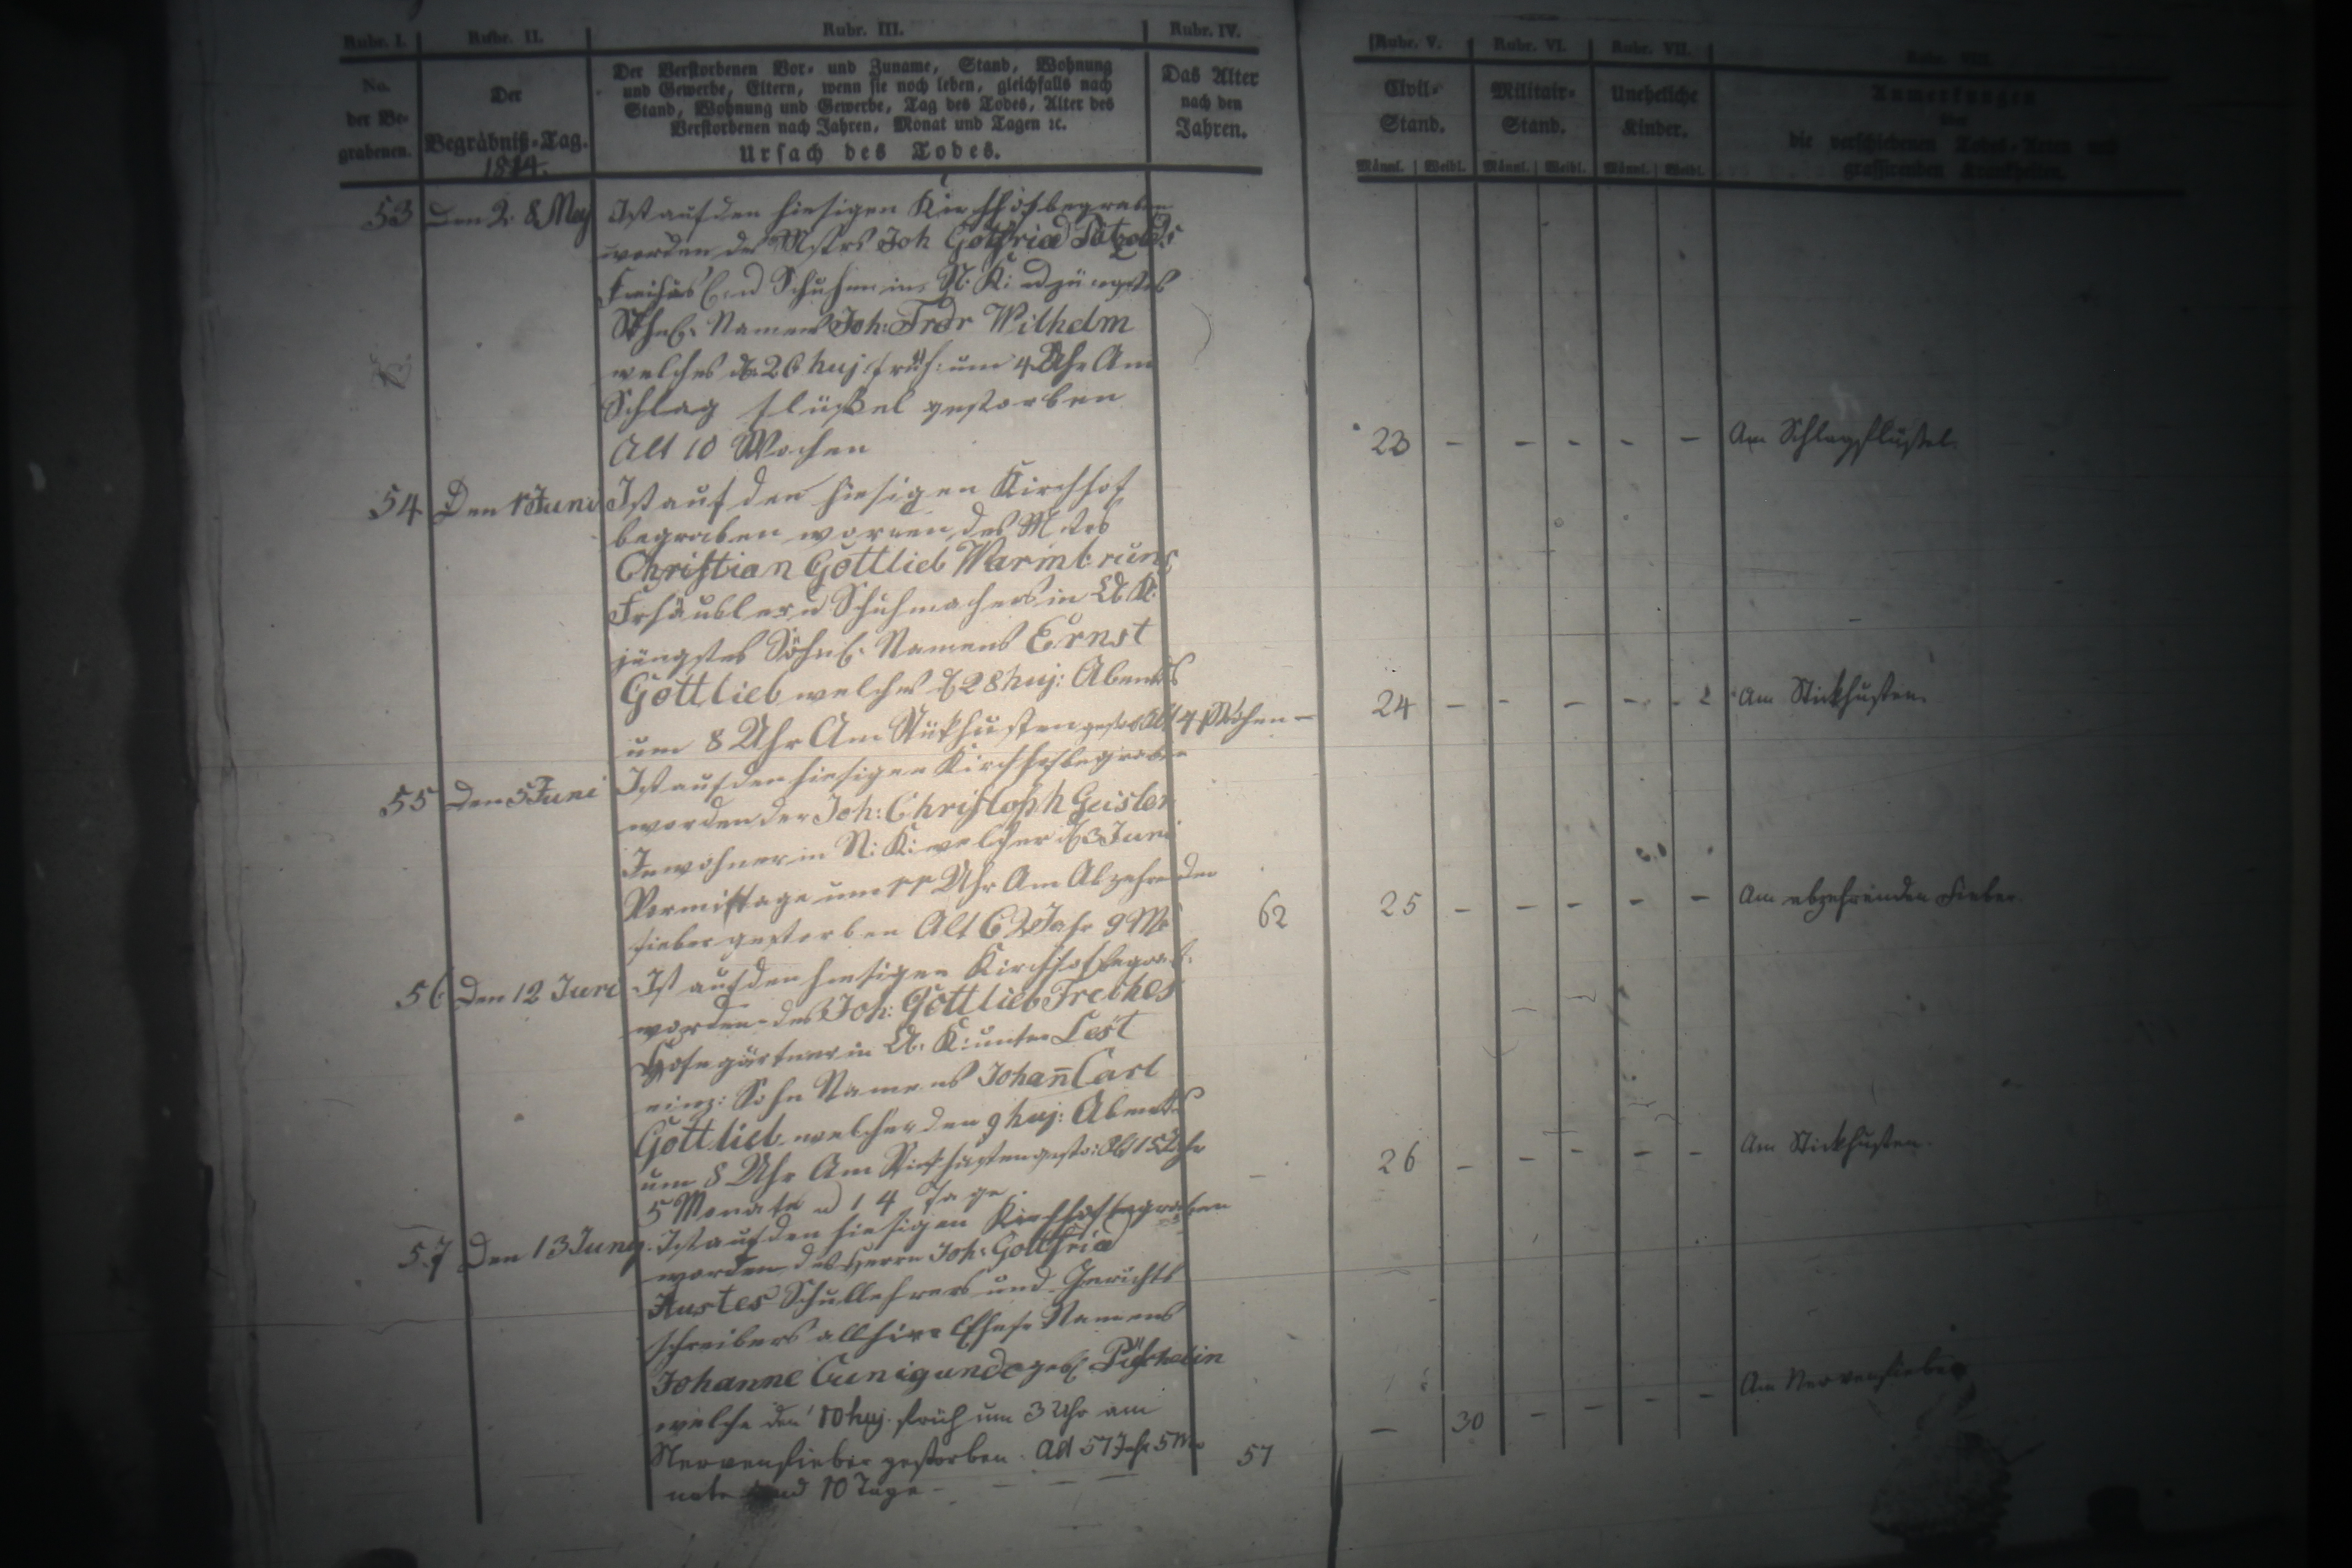 Rubr. I. Rubr. II. Rubr. III. Rubr. IV. Rubr. V. Rubr. VI. Rubr. VII. Rubr. VIII.
No. der Be-grabenen.
Der Begräbniß-Tag. 1814.
Der Verstorbenen Vor- und Zuname, Stand, Wohnung
und Gewerbe, Eltern, wenn sie noch leben, gleichfalls nach
Stand, Wohnung und Gewerbe, Tag des Todes, Alter des
Verstorbenen nach Jahren, Monat und Tagen ꝛc.
Ursach des Todes.
Das Alter nach den Jahren.
Civil-Stand. Männl. Weibl.
Militair-Stand. Männl. Weibl.
Uneheliche Kinder. Männl. Weibl.
Anmerkungen
über
die verschiedenen Todes-Arten und
grassirenden Krankheiten.
53 Den 28 May Ist auf den hiesigen Kirchhof begraben
worden des Mstrs Joh Gottfried
Schuhm in N: K: jüngstes
Söhnl. Namens Joh: Frdr Wilhelm
welches d. 26 huj früh um 4 Uhr Am
Schlag flüßel gestorben
Alt 10 Wochen 23 - - - - - Am Schlagflüßel.
54 Den 1 Juni Ist auf den hiesigen Kirchhof
begraben worden des Mstrs
Christian Gottlieb Warmbruns
Frhäusler u Schuhmachers in K:
jüngstes Söhnl. Namens Ernst
Gottlieb welches d 28 huj: Abends
um 8 Uhr Am Stickhusten gestorb Alt 4 Wochen - 24 - - - - Am Stickhusten.
55 Den 5 Juni Ist auf den hiesigen Kirchhof begraben
worden der Joh: Christoph Geisler
Inwohner in N: K: welcher d 3 Juni
Vormittage um 11 Uhr Am Abzehrenden
fieber gestorben Alt 62 Jahr 9 Mo 62 25 - - - - - Am abzehrenden Fieber.
56 Den 12 Juni Ist auf den hiesigen Kirchhof begrab.
worden des Joh: Gottlieb
Hofegärtner in K: unter
einz: Sohn Namens Johañ Carl
Gottlieb welcher den 9 huj: Abends
um 8 Uhr Am Stickhusten gestor: Alt
5 Monate u 14 Tage. - 26 - - - - - Am Stickhusten.
57 Den 13 Juny. Ist auf den hiesigen Kirchhof begraben
worden des Herrn Joh: Gottfried
Schullehrers und Gerichts
schreibers allhier Ehefr Namens
Johanne Cunigunde geb. Püschelin
welche den 10 huj. früh um 3 Uhr am
Nervenfieber gestorben. Alt 57 Jahr 5 Mo
nate und 10 Tage - - - 57 - 30 - - - - Am Nervenfieber